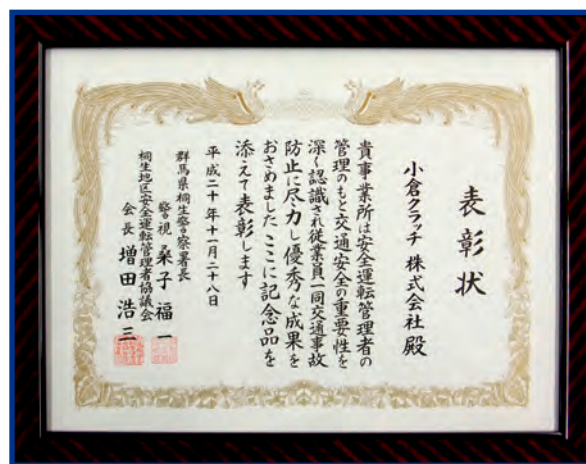 表彰状
小倉クラッチ 株式会社 殿
貴事業所は安全運転管理者の
管理のもと交通安全の重要性を
深く認識され従業員一同交通事故
防止に尽力し優秀な成果を
おさめました ここに記念品を
添えて表彰します
平成二十年十一月二十八日
群馬県桐生警察署長
警視 桑子福一
桐生地区安全運転管理者協議会
会長 増田浩三